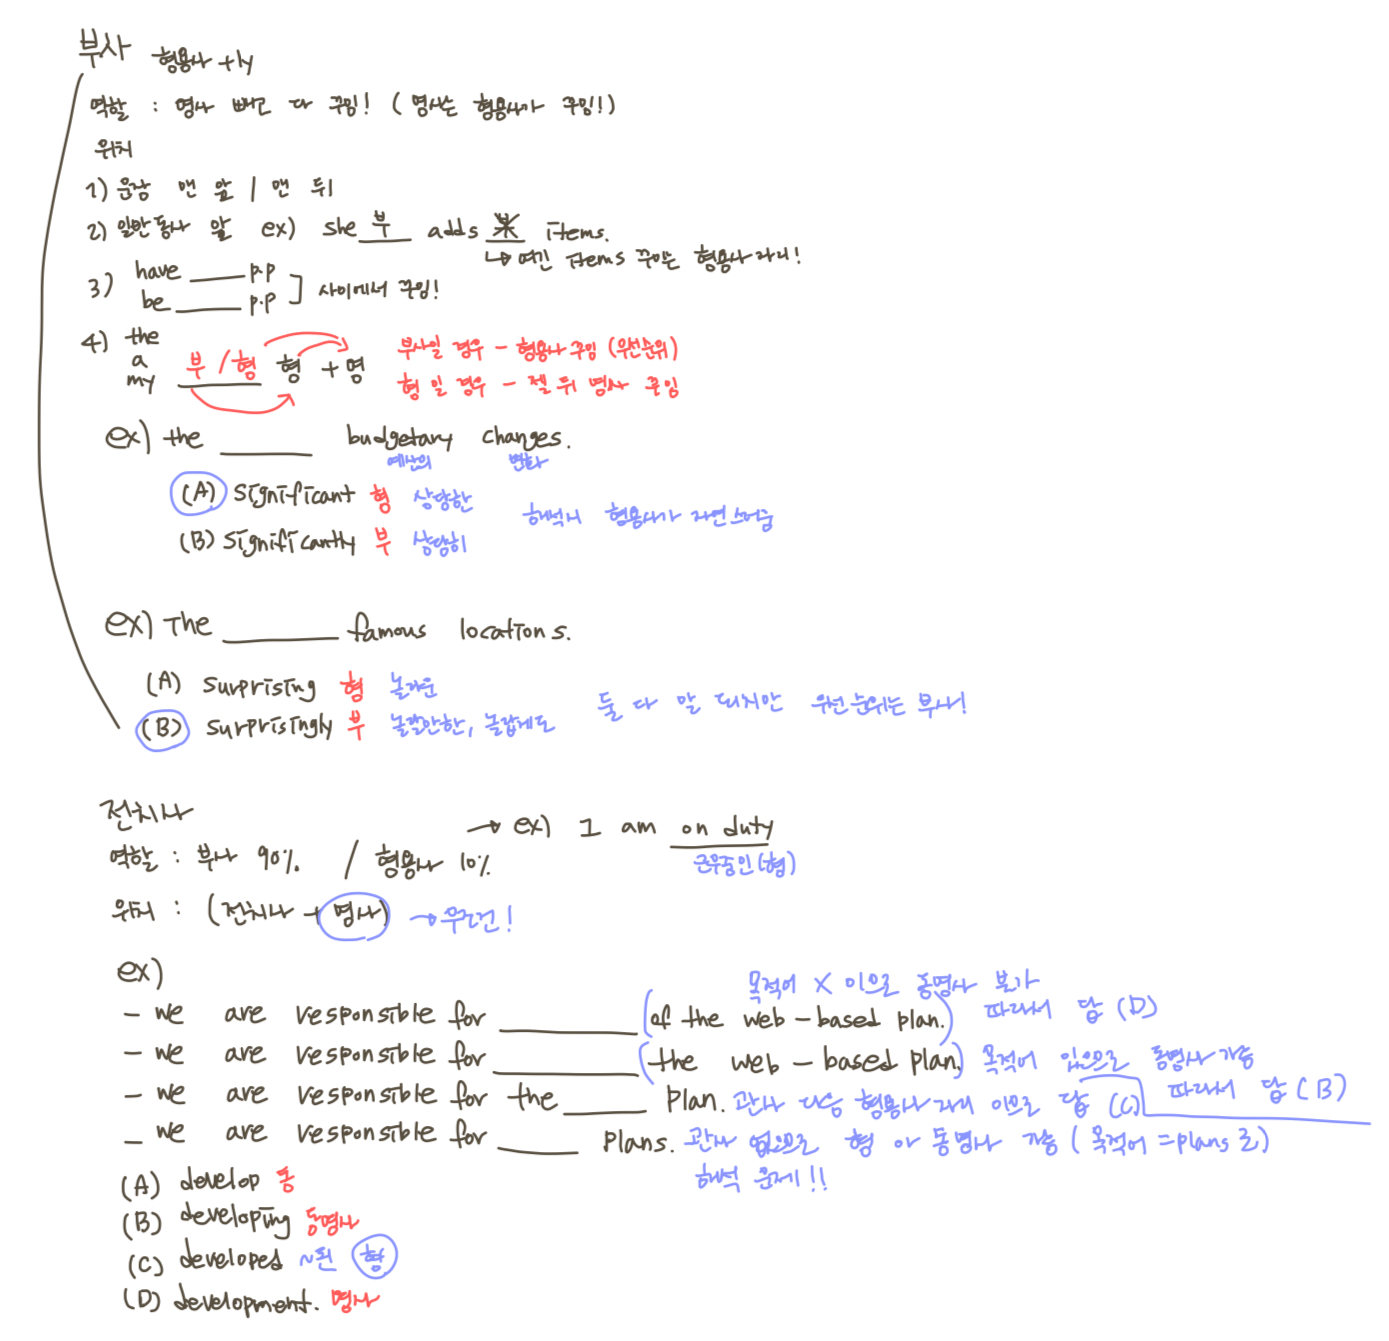 부사 형용사 +ly
역할 : 명사 빼고 다 꾸밈! ( 명사는 형용사가 꾸밈!)
위치
1) 문장 맨 앞 / 맨 뒤
2) 일반동사 앞 ex) she 부 adds 부 items.
↳ 여긴 items 꾸미는 형용사 자리!
3) have ____ p.p
be ____ p.p ] 사이에서 꾸밈!
4) the
a
my 부 / 형 형 + 명
부사일 경우 - 형용사 꾸밈 (우선순위)
형 일 경우 - 젤 뒤 명사 꾸밈
ex) the ____ budgetary changes.
예산의 변화
(A) significant 형 상당한
해석시 형용사가 자연스러움
(B) significantly 부 상당히
ex) The ____ famous locations.
(A) surprising 형 놀라운
(B) surprisingly 부 놀랄만한, 놀랍게도
둘 다 말 되지만 우선순위는 부사!
전치사
→ ex) I am on duty
근무중인 (형)
역할 : 부사 90% / 형용사 10%
위치 : (전치사 + 명사) → 무조건!
ex)
목적어 X 이으로 동명사 불가
- we are responsible for ____ (of the web-based plan.) 따라서 답 (D)
- we are responsible for ____ (the web-based plan.) 목적어 있으므로 동명사 가능
따라서 답 (B)
- we are responsible for the ____ plan. 관사 다음 형용사 자리 이므로 답 (C)
- we are responsible for ____ plans. 관사 없으므로 형 or 동명사 가능 ( 목적어 = plans 로)
해석 문제!!
(A) develop 동
(B) developing 동명사
(C) developed ~된 형
(D) development. 명사